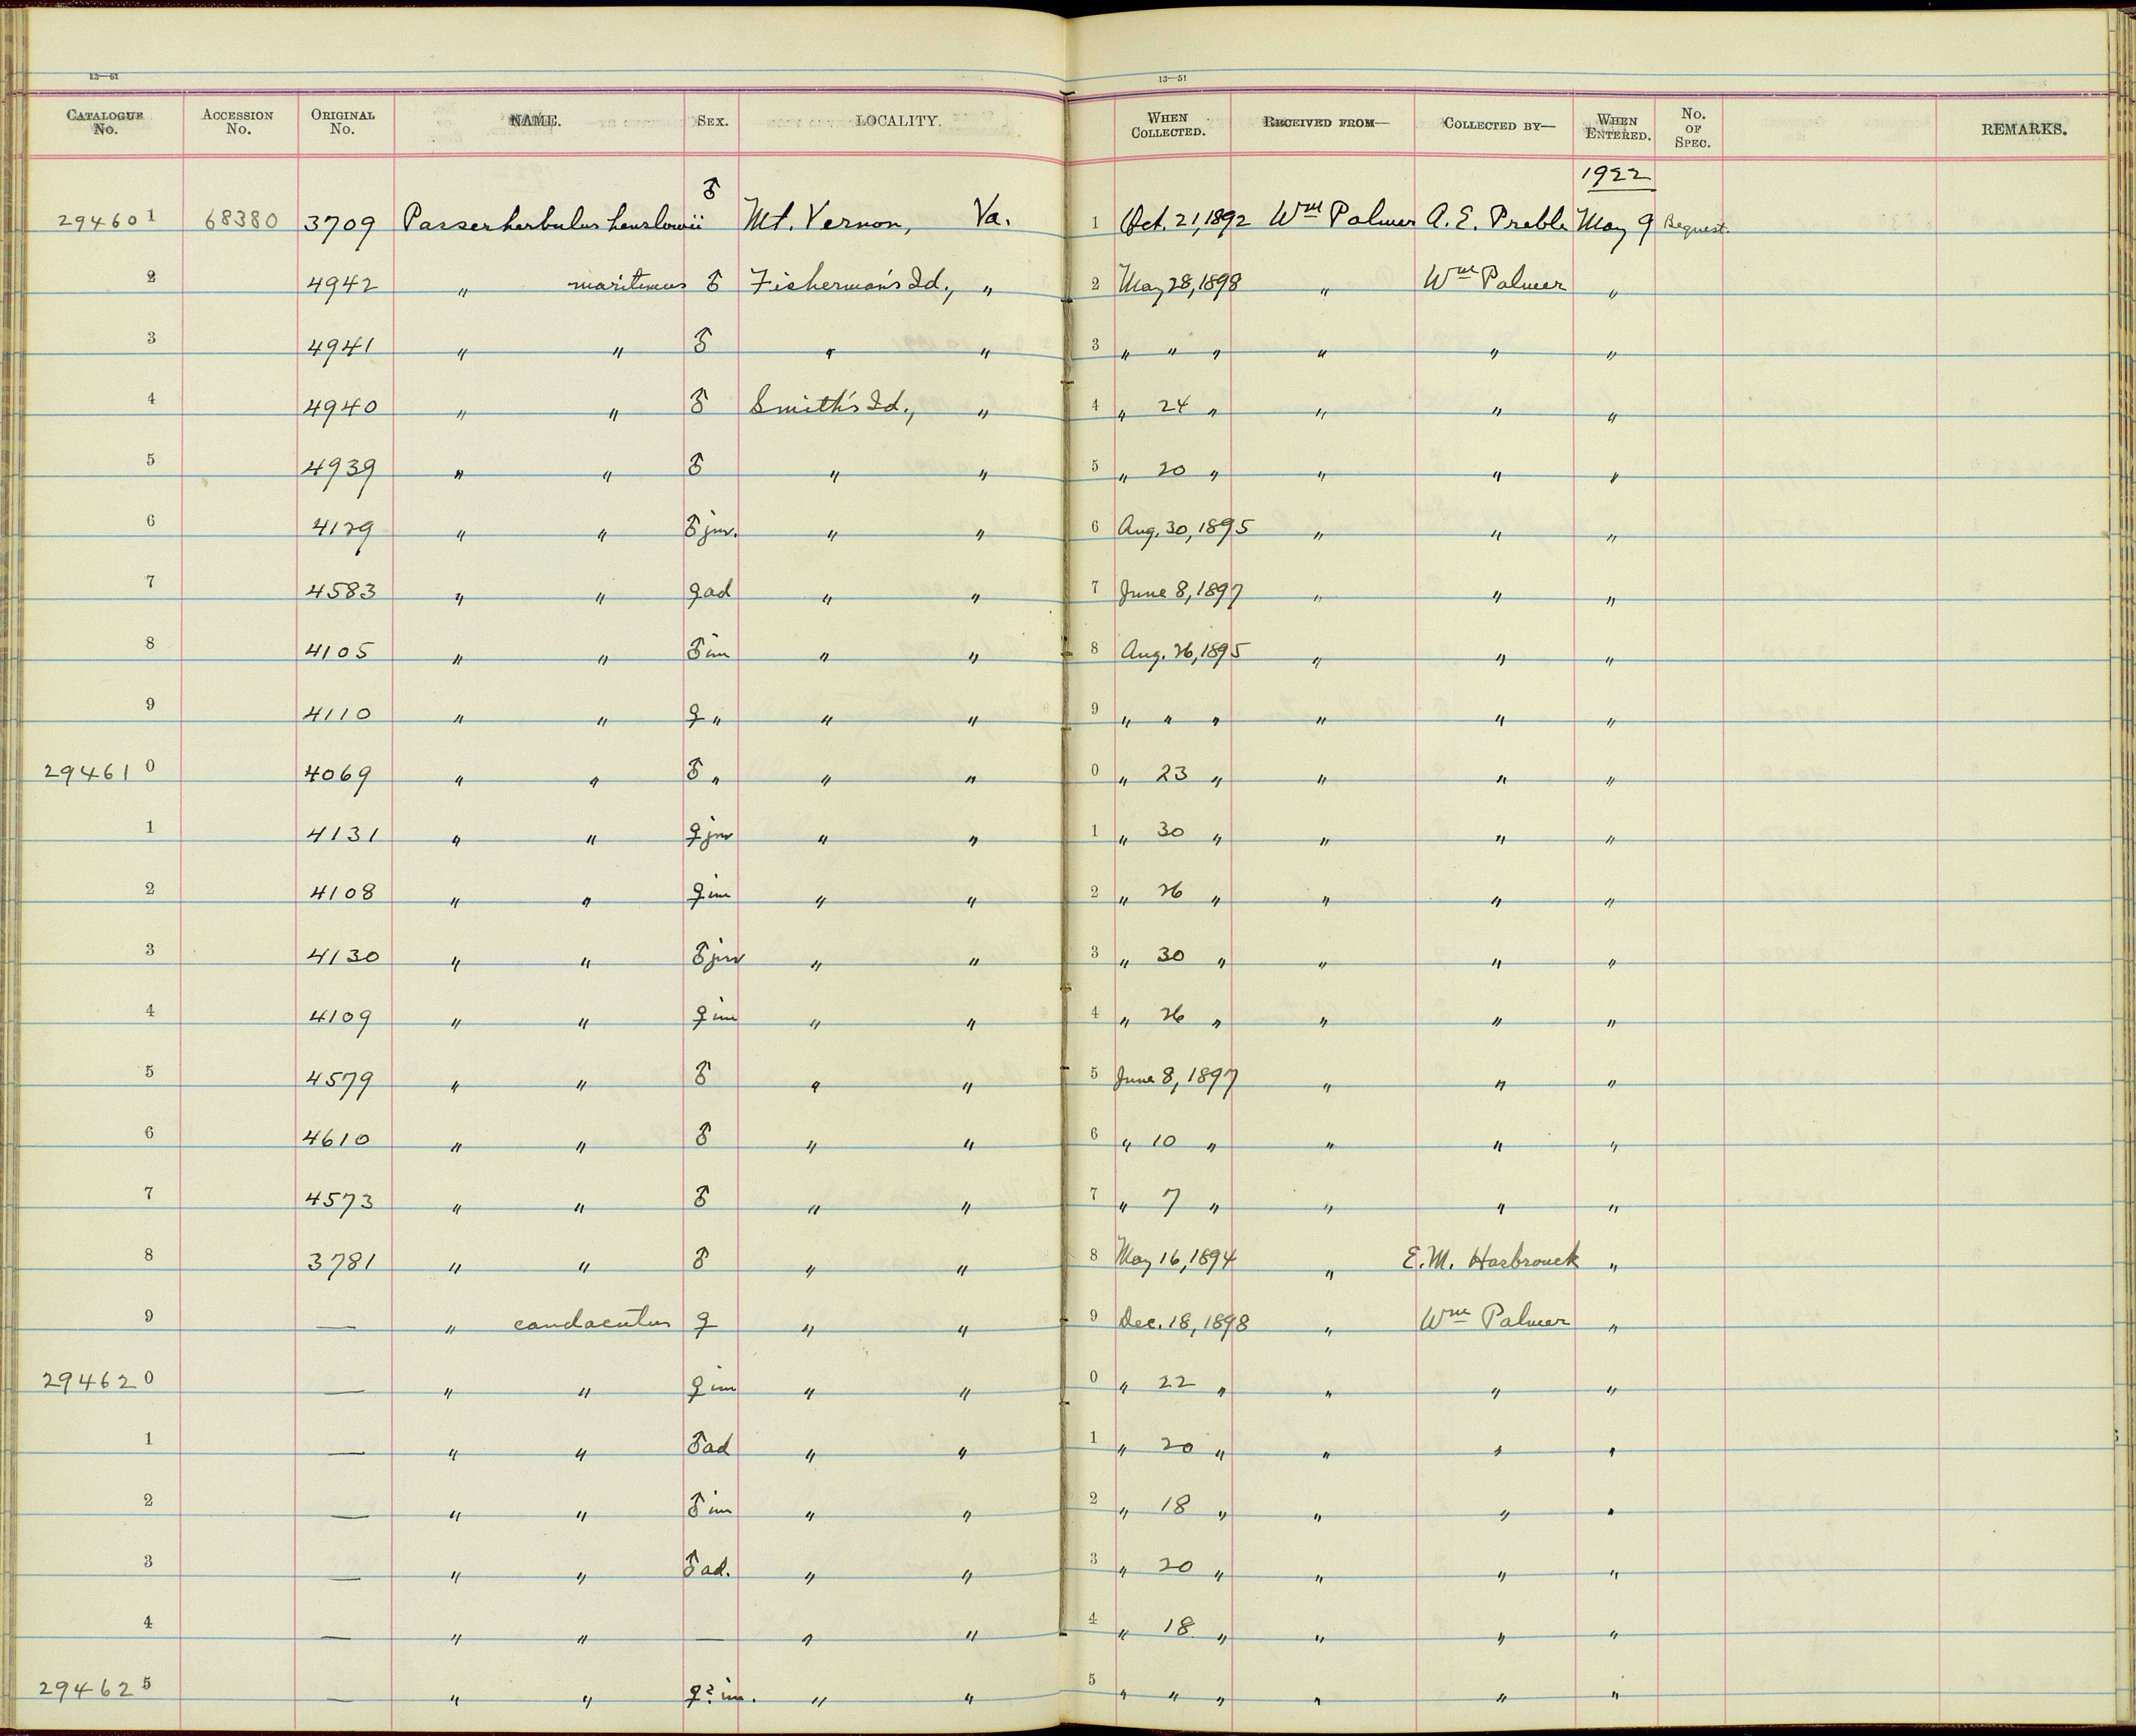 13—51 13—51
CATALOGUE No. ACCESSION No. ORIGINAL No. NAME. SEX. LOCALITY. WHEN COLLECTED. RECEIVED FROM— COLLECTED BY— WHEN ENTERED. No. OF SPEC. REMARKS.
1922
294601 68380 3709 Passerherbulus henslowii ♂ Mt. Vernon, Va. 1 Oct. 21, 1892 Wm Palmer A. E. Preble May 9 Bequest.
2 4942 " maritimus ♂ Fisherman's Id., " 2 May 28, 1898 " Wm Palmer "
3 4941 " " ♂ " " 3 " " " " " "
4 4940 " " ♂ Smith's Id., " 4 " 24 " " " "
5 4939 " " ♂ " " 5 " 20 " " " "
6 4129 " " ♂ juv. " " 6 Aug. 30, 1895 " " "
7 4583 " " ♀ ad " " 7 June 8, 1897 " " "
8 4105 " " ♂ im " " 8 Aug. 26, 1895 " " "
9 4110 " " ♀ " " " 9 " " " " " "
294610 4069 " " ♂ " " " 0 " 23 " " " "
1 4131 " " ♀ juv " " 1 " 30 " " " "
2 4108 " " ♀ im " " 2 " 26 " " " "
3 4130 " " ♂ juv " " 3 " 30 " " " "
4 4109 " " ♀ im " " 4 " 26 " " " "
5 4579 " " ♂ " " 5 June 8, 1897 " " "
6 4610 " " ♂ " " 6 " 10 " " " "
7 4573 " " ♂ " " 7 " 7 " " " "
8 3781 " " ♂ " " 8 May 16, 1894 " E. M. Hasbrouck "
9 — " caudacutus ♀ " " 9 Dec. 18, 1898 " Wm Palmer "
294620 — " " ♀ im " " 0 " 22 " " " "
1 — " " ♂ ad " " 1 " 20 " " " "
2 — " " ♂ im " " 2 " 18 " " " "
3 — " " ♂ ad. " " 3 " 20 " " " "
4 — " " — " " 4 " 18 " " " "
294625 — " " ♀? im. " " 5 " " " " " "